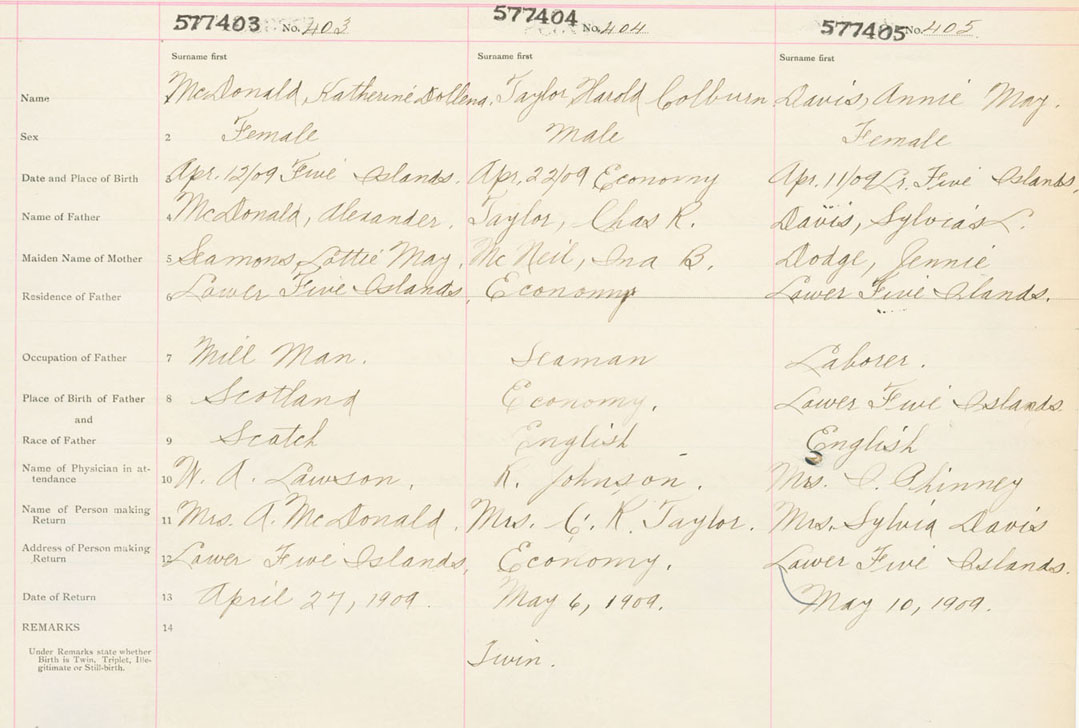 577403 No. 403 577404 No. 404 577405 No. 405
Surname first Surname first Surname first
Name McDonald, Katherine Dollena. Taylor Harold Colburn Davis, Annie May.
Sex 2 Female Male Female
Date and Place of Birth 3 Apr. 12/09 Five Islands. Apr. 22/09 Economy Apr. 11/09 Lr. Five Islands,
Name of Father 4 McDonald, Alexander. Taylor, Chas R. Davis,
Maiden Name of Mother 5 Seamons, Lottie May. McNeil, Ina B. Dodge, Jennie
Residence of Father 6 Lower Five Islands, Economy Lower Five Islands.
Occupation of Father 7 Mill Man. Seaman Laborer.
Place of Birth of Father 8 Scotland Economy. Lower Five Islands.
and
Race of Father 9 Scotch English English
Name of Physician in at-
tendance 10 W. A. Lawson. R. Johnson. Mrs.
Name of Person making
Return 11 Mrs. A. McDonald. Mrs. C. R. Taylor. Mrs. Sylvia Davis
Address of Person making
Return 12 Lower Five Islands, Economy. Lower Five Islands.
Date of Return 13 April 27, 1909. May 6, 1909. May 10, 1909.
REMARKS 14
Under Remarks state whether
Birth is Twin, Triplet, Ille-
gitimate or Still-birth.
Twin.